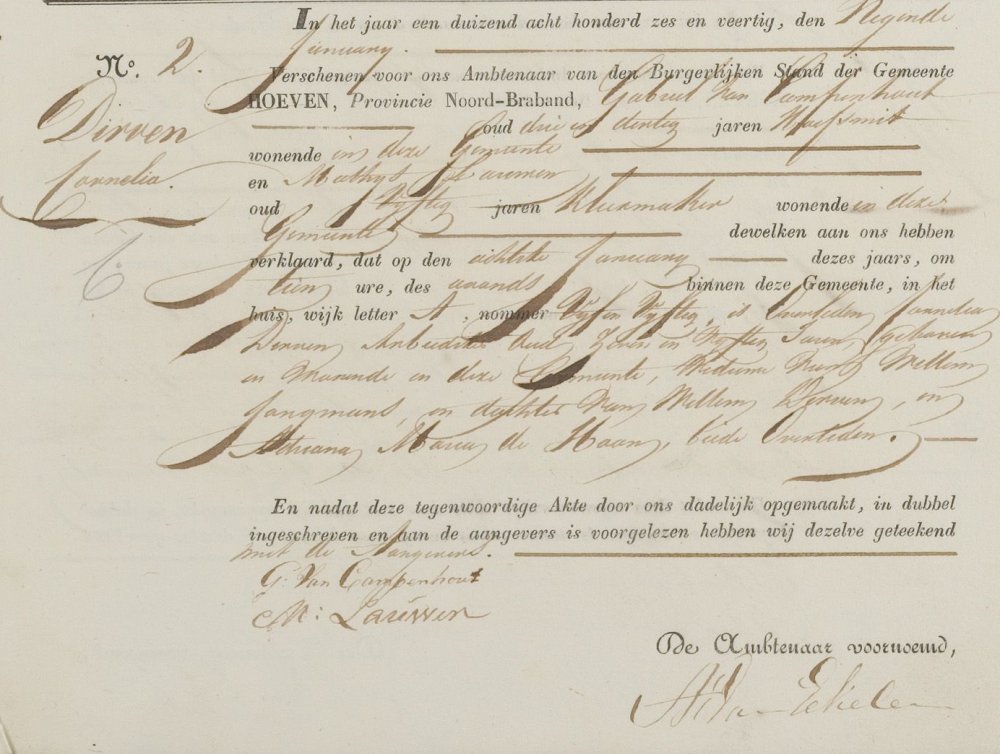 In het jaar een duizend acht honderd zes en veertig, den Negende
January.
No. 2.
Verschenen voor ons Ambtenaar van den Burgerlijken Stand der Gemeente
HOEVEN, Provincie Noord-Braband, Gabriel Van Campenhout
Dirven
oud drie en dertig jaren Hoefsmit
wonende in deze Gemeente
Cornelia.
en Mathys Lauwen
oud Vyftig jaren Kleermaker wonende in deze
Gemeente dewelken aan ons hebben
verklaard, dat op den achtste January dezes jaars, om
tien ure, des avonds binnen deze Gemeente, in het
huis, wijk letter A, nommer Vyf en Vyftig, is Overleden Cornelia
Dirven Arbeidster oud Zeven en Vyftig Jaren, geboren
en Wonende in deze Gemeente, Weduwe Van Willem
Jongmans, en dochter Van Willem Dirven, en
Adriana Maria de Haan, beide Overleden.
En nadat deze tegenwoordige Akte door ons dadelijk opgemaakt, in dubbel
ingeschreven en aan de aangevers is voorgelezen hebben wij dezelve geteekend
met de Aangevers.
G. Van Campenhout
M: Lauwen
De Ambtenaar voornoemd,